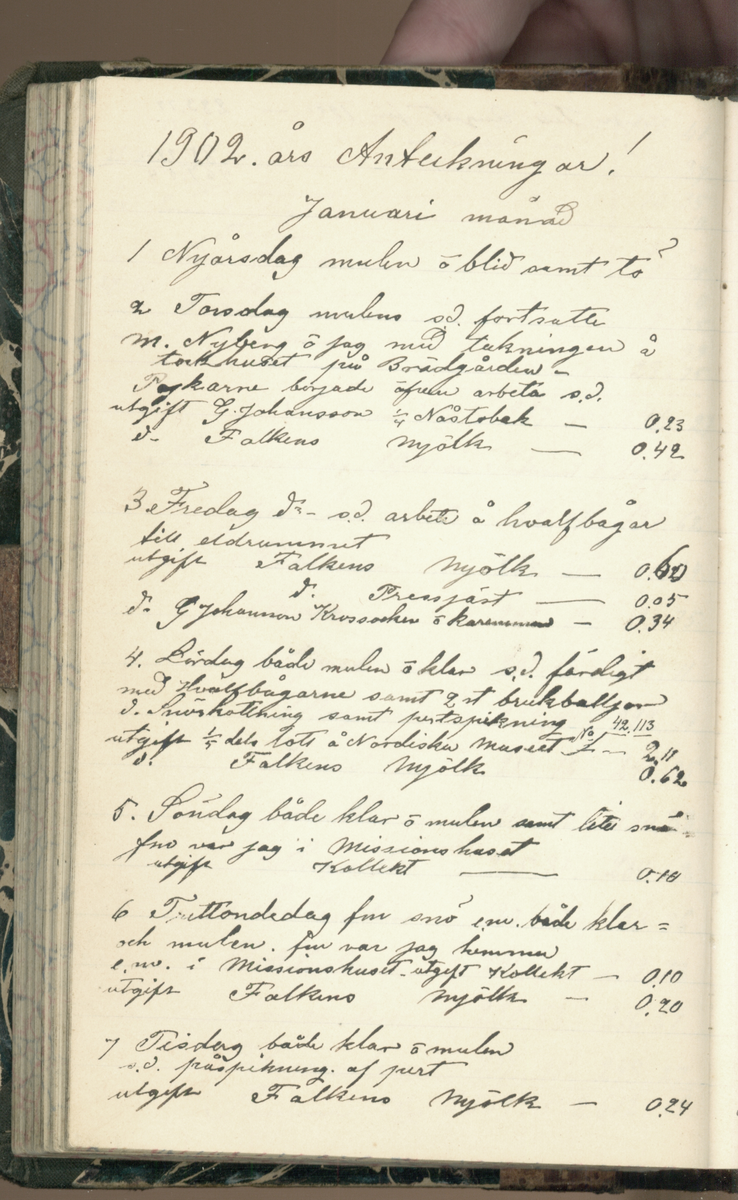 1902. års Anteckningar!
Januari månad
1 Nyårsdag mulen ō blid samt tö
2 Torsdag mulens s.d. fortsatte
M. Nyberg ō jag med takningen å
torkhuset på Brädgården -
Pojkarne började äfven arbeta s.d.
utgift G. Johansson 1/4 Nästobak — 0.23
d- Falkens Mjölk — 0.42
3. Fredag d:- s.d. arbete å hvalfbågar
till eldrummet
utgift Falkens Mjölk — 0.60
d. Pressjäst — 0.05
d- G Johansson Krossocker ō karemmer — 0.34
4. Lördag både mulen ō klar s.d. färdigt
med Hvalfbågarne samt 2 st brukballjor
d. Snöskottning samt pertspikning
utgift 1/5 dels lott å Nordiska Museet No 42,113 — 2.11
d. Falkens Mjölk 0.62
5. Söndag både klar ō mulen samt lite snö
fm var jag i Missionshuset
utgift Kollekt — 0.10
6 Trettondedag fm snö e.m. både klar =
och mulen. fm var jag hemma
e.m. i Missionshuset - utgift Kollekt — 0.10
utgift Falkens Mjölk — 0.20
7 Tisdag både klar ō mulen
s.d. påspikning af pert
utgift Falkens Mjölk — 0.24